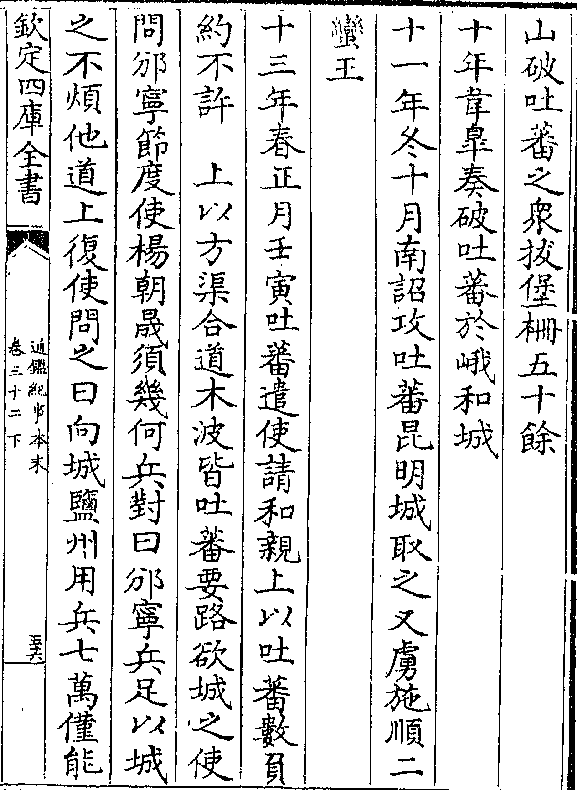 山破吐蕃之衆拔堡柵五十餘
十年韋臯奏破吐蕃於峨和城
十一年冬十月南詔攻吐蕃昆明城取之又虜施順二
蠻王
十三年春正月壬寅吐蕃遣使請和親上以吐蕃數負
約不許　上以方渠合道木波皆吐蕃要路欲城之使
問邠寧節度使楊朝晟須幾何兵對曰邠寧兵足以城
之不煩他道上復使問之曰向城鹽州用兵七萬僅能
欽定四庫全書
通鑑紀事本末
卷三十二下
五六